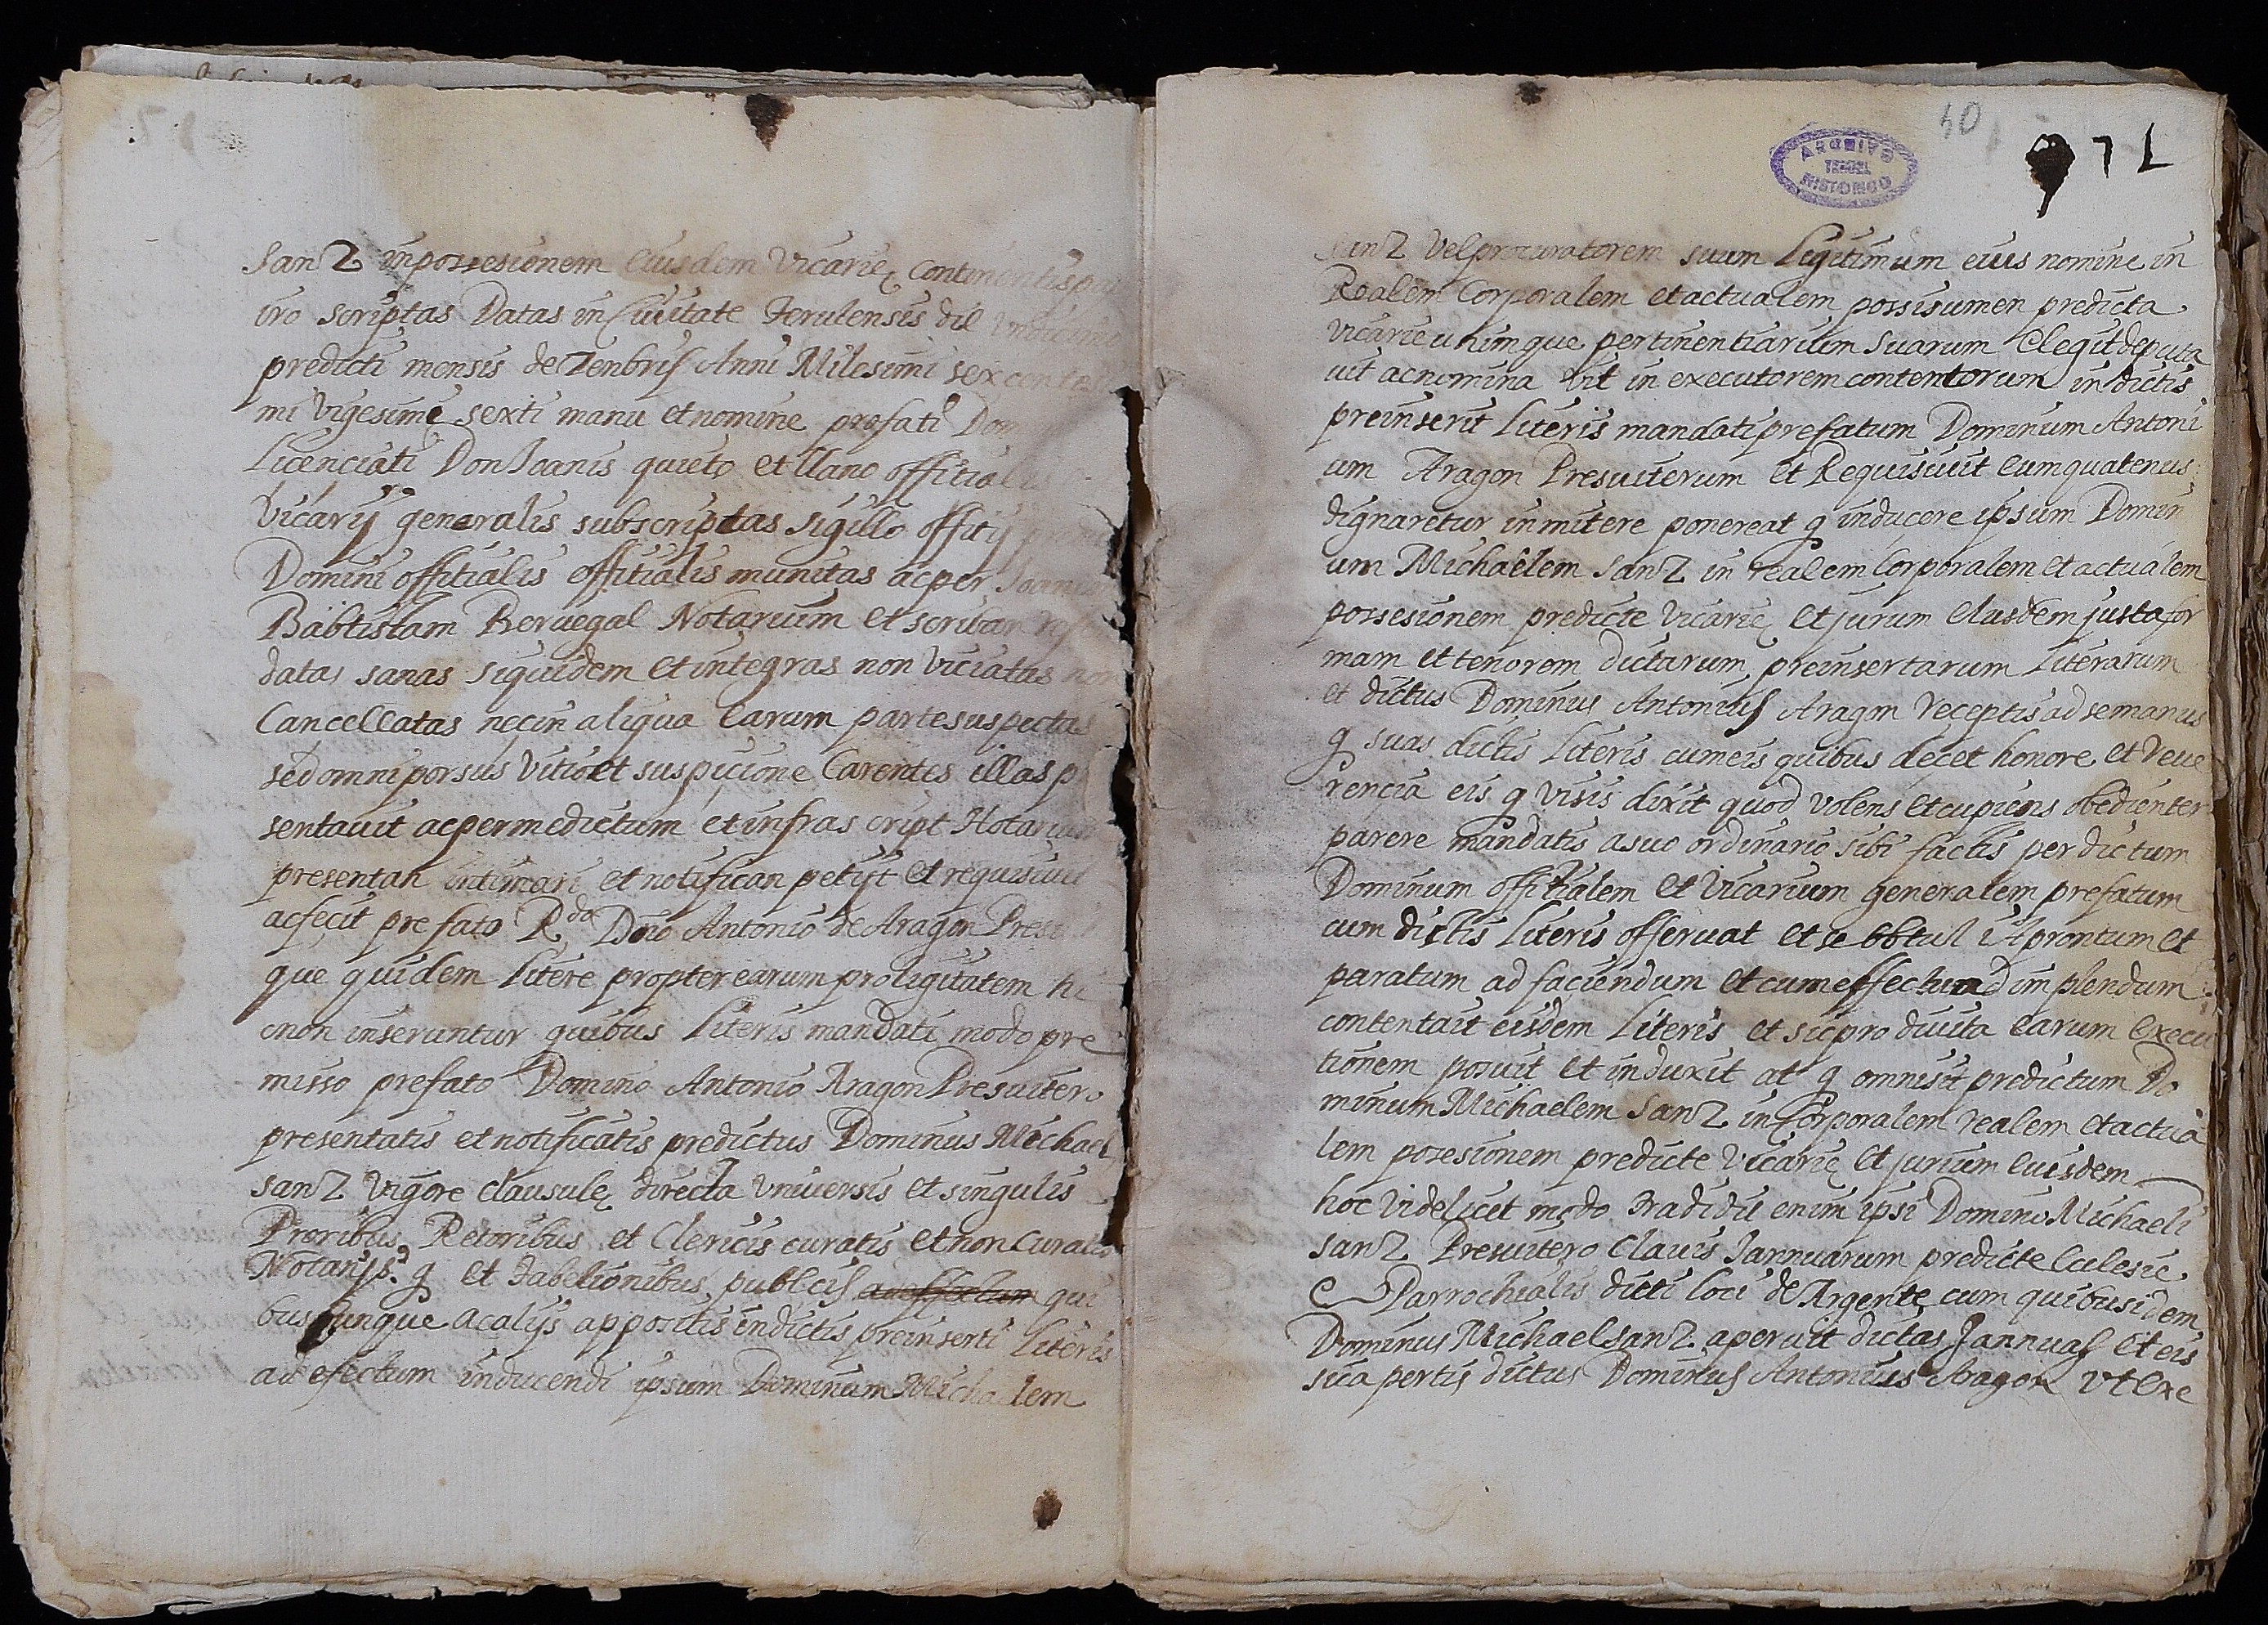 SanZ inpossesionem eiusdem Vicarie continentis
iro scriptas Datas in Ciuitate Terulensis die
predicti mensis deZenbris Anni Milesimi sex
mi vigesime sexti manu et nomine prefati
Licenciati Don Joanis quieto et llano offitialis
Vicarij generalis subscriptas sigillo offitij
Domini offitialis offitialis munitas ac per
Babtistam Reruegal Notarium et scribam
datas sanas siquidem et integras non viciatas non
Cancellatas nec in aliqua earum parte suspectas
sed omni porsus vitio et suspicione Carentes illas
sentauit ac per me dictum et infras cript Notarium
presentari intimari et notificari petijt et requisiuit
ac fecit prefato R.do Dno Antonio de Aragon
que quidem litere propter earum proligitatem hi
cnon inseruntur quibus literis mandati modo pre
misso prefato Domino Antonio Aragon Presuitero
presentatis et notificatis predictus Dominus Michael
sanZ vigore clausule directa vniuersis et singulis
Prioribus Retoribus et Clericis curatis et non curatis
Notarijs q et Tabelionibus publicis qui
buscunque ac alijs appositis in dictis preinserti literis
ad efectum inducendi ipsum Dominum Michaelem
40
971
ARCHIVO
TERUEL
HISTORICO
sanZ vel procuratorem suum Ligitimum eius nomine in
Realem Corporalem et actualem possisumen predicta
vicarie u nim que pertinentiarium suarum elegit deputa
uit ac nomina bit in executorem contentorum in dictis
preinserit literis mandati prefatum Dominum Antoni
um Aragon Presuiterum et Requisiuit eum quatenus
dignaretur inmitere ponereat q inducere ipsum Domin
um Michaelem sanZ in realem Corporalem et actualem
possesionem predicte vicarie et jurum eiusdem justa for
mam et tenorem dictarum preinsertarum literarum
et dictus Dominus Antonius Aragon receptis ad se manus
q suas dictis literis cum eis quibus decet honore et reue
rencia eis q visis dixit quod volens et cupiens obedienter
parere mandatis a suo ordinario sibi factis per dictum
Dominum offitialem et vicarium generalem prefatum
cum dictis literis offeruat et se obtul it prontum et
paratum ad faciendum et cum effectu ad implendum
contentait eisdem literis et sic pro diuita earum execu
tionem posuit et induxit at q omnisit predictum Do
minum Michaelem sanZ in Corporalem realem et actua
lem posesionem predicte vicarie et jurium euisdem
hoc videlicet modo Tradidit enim ipsi Domino Michaeli
sanZ Presuitero clauis Jannuarum predicte Eclesie
Parrochialis dicti loci de Argente cum quibus idem
Dominus Michael sanZ aperuit dictas Jannuas et eis
sic apertis dictus Dominus Antonius Aragon vt Exe